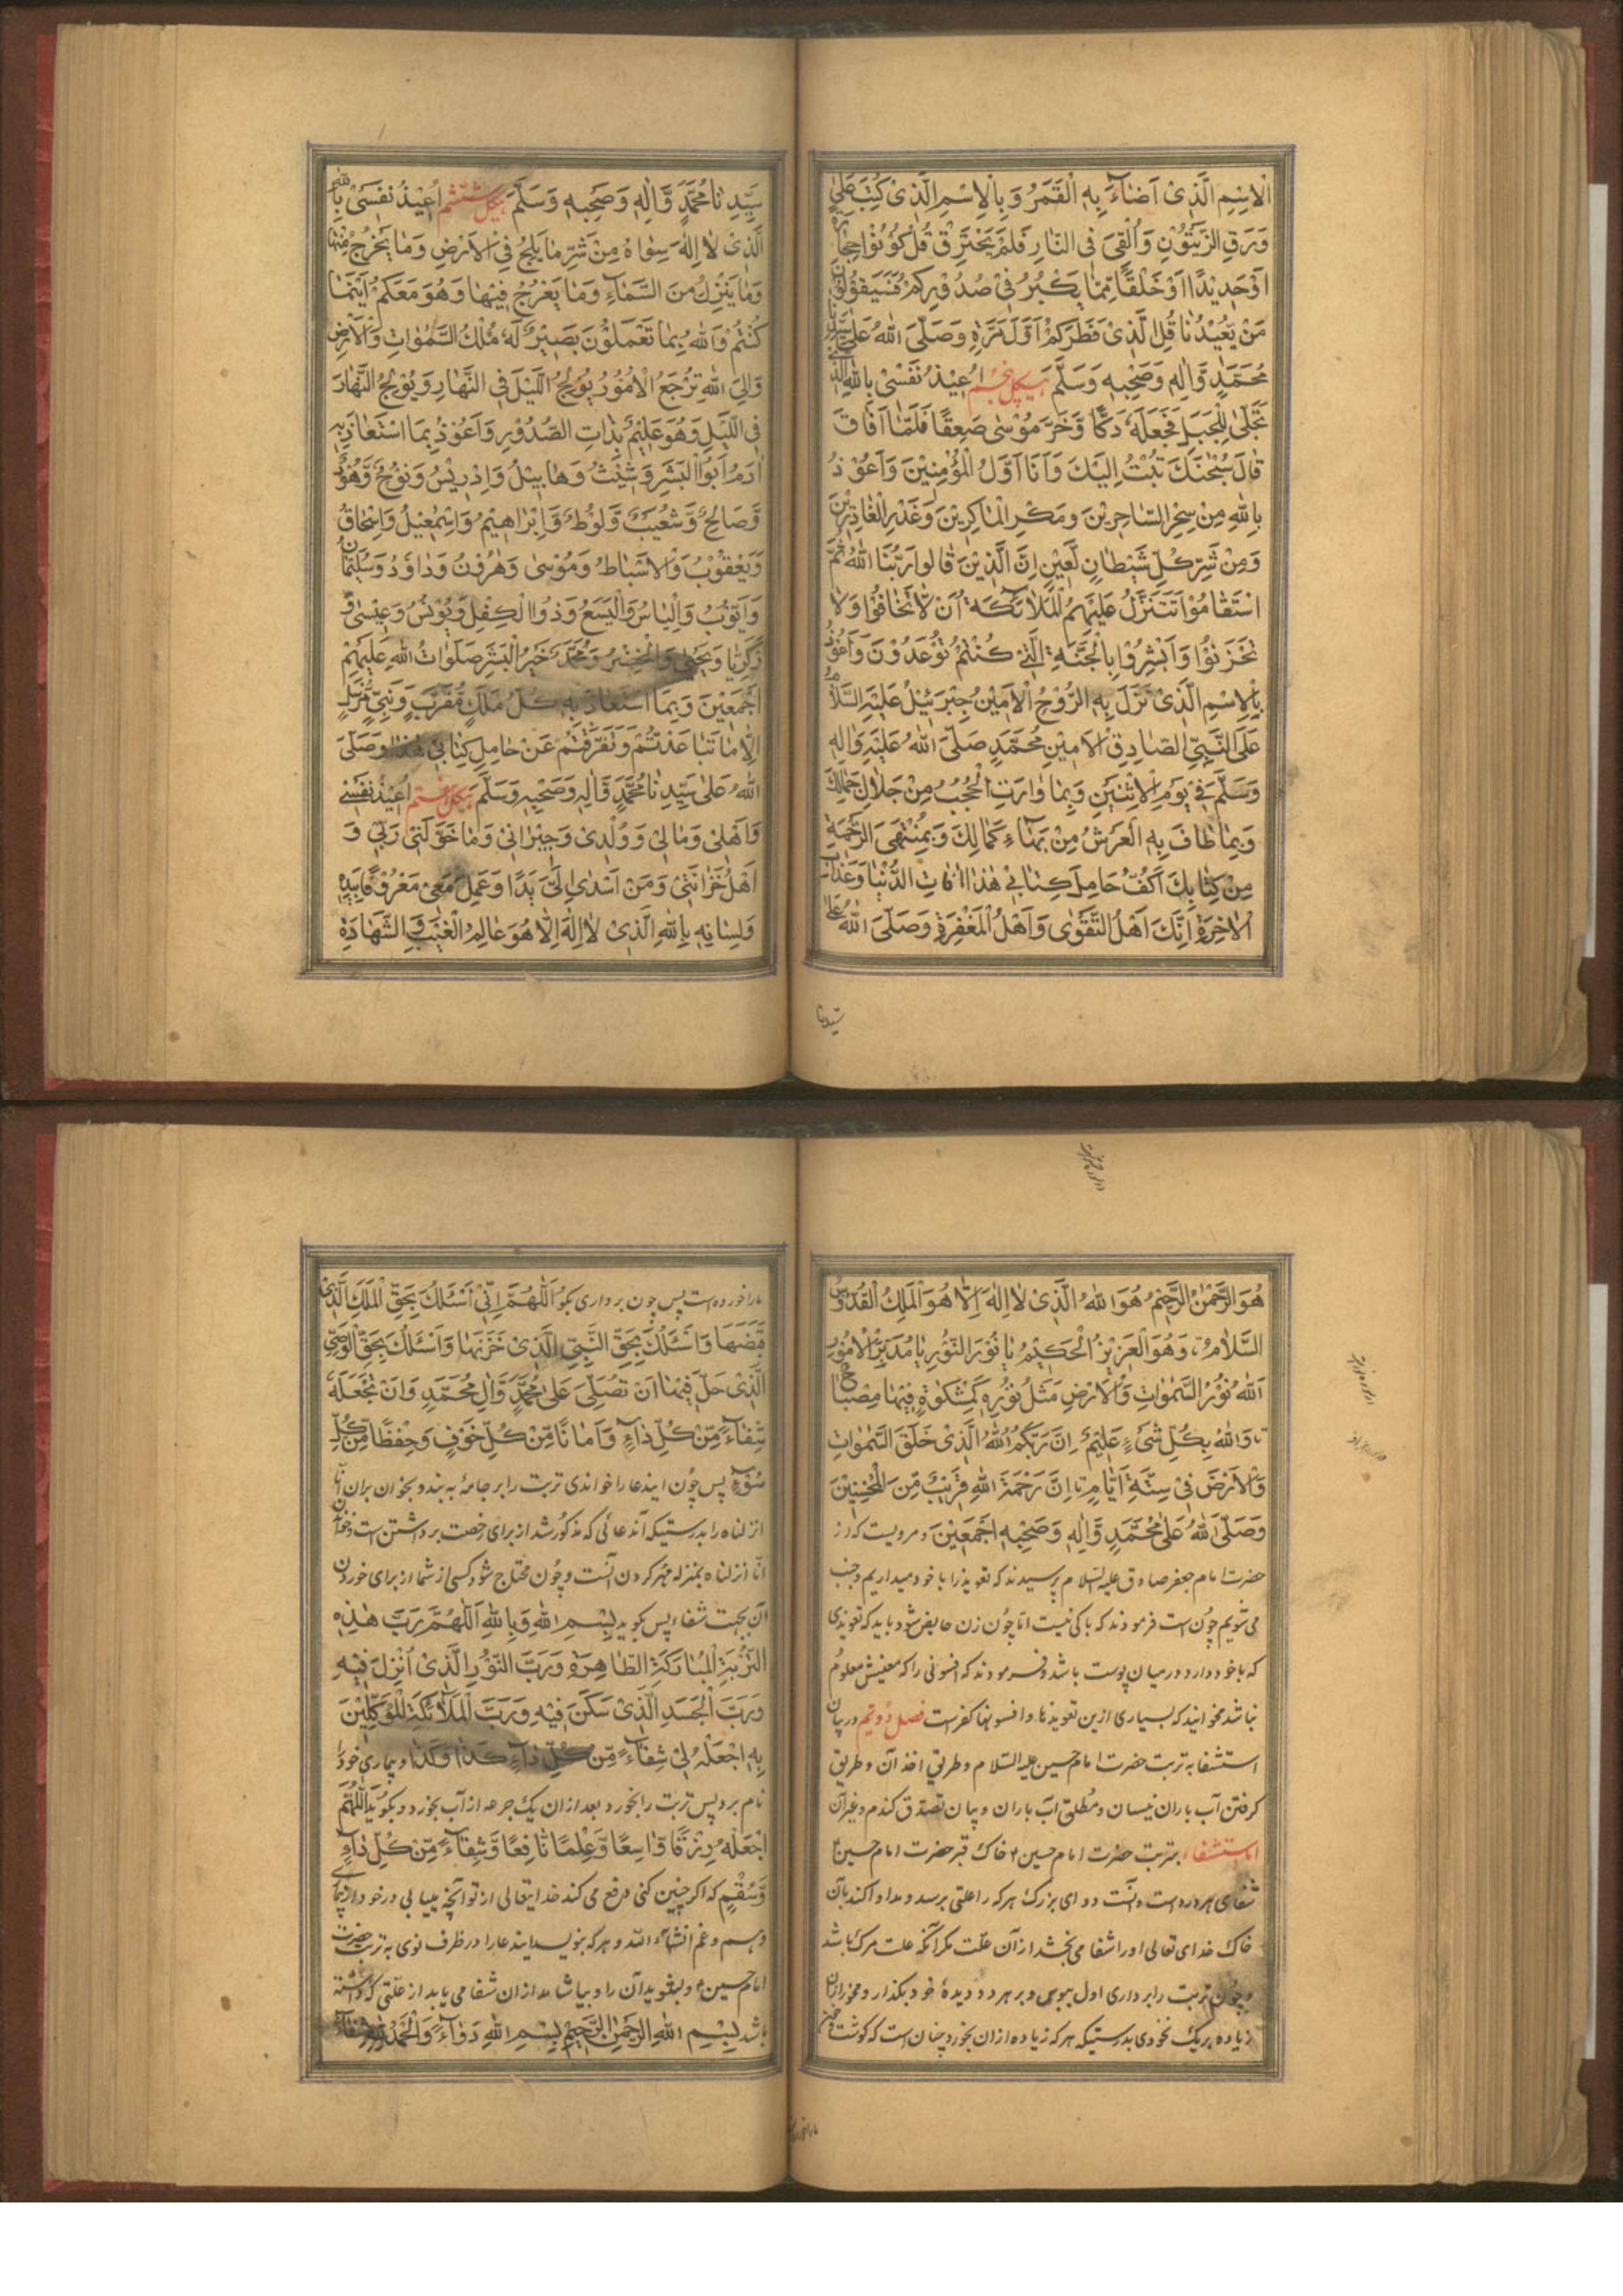 الْاِسْمِ الَّذِیْ اَضَاءَ بِهِ الْقَمَرُ وَ بِالْاِسْمِ الَّذِیْ كُتِبَ عَلٰی
وَرَقِ الزَّیْتُوْنِ وَاُلْقِیَ فِی النَّارِ فَلَمْ یَحْتَرِقْ قُلْ كُوْنُوْا حِجَارَةً
اَوْحَدِیْدًا اَوْخَلْقًا مِّمَّا یَكْبُرُ فِیْ صُدُوْرِكُمْ فَسَیَقُوْلُوْنَ
مَنْ یُّعِیْدُنَا قُلِ الَّذِیْ فَطَرَكُمْ اَوَّلَ مَرَّةٍ وَصَلَّی اللهُ عَلٰی سَیِّدِنَا
مُحَمَّدٍ وَّاٰلِهٖ وَصَحْبِهٖ وَسَلَّمَ هیكل پنجم اُعِیْذُ نَفْسِیْ بِاللهِ الَّذِیْ
تَجَلّٰی لِلْجَبَلِ فَجَعَلَهٗ دَكًّا وَّخَرَّ مُوْسٰی صَعِقًا فَلَمَّا اَفَاقَ
قَالَ سُبْحٰنَكَ تُبْتُ اِلَیْكَ وَاَنَا اَوَّلُ الْمُؤْمِنِیْنَ وَاَعُوْذُ
بِاللهِ مِنْ سِحْرِ السَّاحِرِیْنَ وَمَكْرِ الْمَاكِرِیْنَ وَغَدْرِ الْغَادِرِیْنَ
وَمِنْ شَرِّ كُلِّ شَیْطَانٍ لَّعِیْنٍ اِنَّ الَّذِیْنَ قَالُوا رَبُّنَا اللهُ ثُمَّ
اسْتَقَامُوْا تَتَنَزَّلُ عَلَیْهِمُ الْمَلٰٓائِكَةُ اَنْ لَّا تَخَافُوْا وَلَا
تَحْزَنُوْا وَاَبْشِرُوْا بِالْجَنَّةِ الَّتِیْ كُنْتُمْ تُوْعَدُوْنَ وَاَعُوْذُ
بِالْاِسْمِ الَّذِیْ نَزَلَ بِهِ الرُّوْحُ الْاَمِیْنُ جِبْرَئِیْلُ عَلَیْهِ السَّلَامُ
عَلَی النَّبِیِّ الصَّادِقِ الْاَمِیْنِ مُحَمَّدٍ صَلَّی اللهُ عَلَیْهِ وَاٰلِهٖ
وَسَلَّمَ فِیْ یَوْمِ الْاِثْنَیْنِ وَبِمَا وَارَتِ الْحُجُبُ مِنْ جَلَالِ جَمَالِكَ
وَبِمَا طَافَ بِهِ الْعَرْشُ مِنْ بَهَاءِ كَمَالِكَ وَبِمُنْتَهَی الرَّحْمَةِ
مِنْ كِتَابِكَ اَكُفُّ حَامِلَ كِتَابِیْ هٰذَا اٰفَاتِ الدُّنْیَا وَعَذَابَ
الْاٰخِرَةِ اِنَّكَ اَهْلُ التَّقْوٰی وَاَهْلُ الْمَغْفِرَةِ وَصَلَّی اللهُ عَلٰی
سیدنا
سَیِّدِنَا مُحَمَّدٍ وَّاٰلِهٖ وَصَحْبِهٖ وَسَلَّمَ هیكل ششم اُعِیْذُ نَفْسِیْ بِاللهِ
الَّذِیْ لَا اِلٰهَ سِوَاهُ مِنْ شَرِّ مَا یَلِجُ فِی الْاَرْضِ وَمَا یَخْرُجُ مِنْهَا
وَمَا یَنْزِلُ مِنَ السَّمَاءِ وَمَا یَعْرُجُ فِیْهَا وَهُوَ مَعَكُمْ اَیْنَمَا
كُنْتُمْ وَاللهُ بِمَا تَعْمَلُوْنَ بَصِیْرٌ لَهٗ مُلْكُ السَّمٰوَاتِ وَالْاَرْضِ
وَاِلَی اللهِ تُرْجَعُ الْاُمُوْرُ یُوْلِجُ اللَّیْلَ فِی النَّهَارِ وَیُوْلِجُ النَّهَارَ
فِی اللَّیْلِ وَهُوَ عَلِیْمٌ بِذَاتِ الصُّدُوْرِ وَاَعُوْذُ بِمَا اسْتَعَاذَ بِهٖ
اٰدَمُ اَبُو الْبَشَرِ وَشِیْثُ وَهَابِیْلُ وَاِدْرِیْسُ وَنُوْحٌ وَّهُوْدٌ
وَّصَالِحٌ وَّشُعَیْبٌ وَّلُوْطٌ وَّاِبْرَاهِیْمُ وَاِسْمٰعِیْلُ وَاِسْحَاقُ
وَیَعْقُوْبُ وَالْاَسْبَاطُ وَمُوْسٰی وَهٰرُوْنُ وَدَاوٗدُ وَسُلَیْمَانُ
وَاَیُّوْبُ وَاِلْیَاسُ وَالْیَسَعُ وَذُوا الْكِفْلِ وَیُوْنُسُ وَعِیْسٰی وَ
زَكَرِیَّا وَیَحْیٰی وَالْخِضْرُ وَمُحَمَّدٌ خَیْرُ الْبَشَرِ صَلَوَاتُ اللهِ عَلَیْهِمْ
اَجْمَعِیْنَ وَبِمَا اسْتَعَاذَ بِهٖ كُلُّ مَلَكٍ مُّقَرَّبٍ وَّنَبِیٍّ مُّرْسَلٍ
اِلَّا مَا تَبَاعَدْتُمْ وَتَفَرَّقْتُمْ عَنْ حَامِلِ كِتَابِیْ هٰذَا وَصَلَّی
اللهُ عَلٰی سَیِّدِنَا مُحَمَّدٍ وَّاٰلِهٖ وَصَحْبِهٖ وَسَلَّمَ هیكل هفتم اُعِیْذُ نَفْسِیْ
وَاَهْلِیْ وَمَالِیْ وَوُلْدِیْ وَجِیْرَانِیْ وَمَا خَوَّلَنِیْ رَبِّیْ وَ
اَهْلَ خَزَانَتِیْ وَمَنْ اَسْدٰی اِلَیَّ یَدًا وَعَمِلَ مَعِیْ مَعْرُوْفًا بِیَدِهٖ
وَلِسَانِهٖ بِاللهِ الَّذِیْ لَا اِلٰهَ اِلَّا هُوَ عَالِمُ الْغَیْبِ وَالشَّهَادَةِ
هُوَ الرَّحْمٰنُ الرَّحِیْمُ هُوَ اللهُ الَّذِیْ لَا اِلٰهَ اِلَّا هُوَ الْمَلِكُ الْقُدُّوْسُ
السَّلَامُ وَهُوَ الْعَزِیْزُ الْحَكِیْمُ یَا نُوْرَ النُّوْرِ یَا مُدَبِّرَ الْاُمُوْرِ
اَللهُ نُوْرُ السَّمٰوَاتِ وَالْاَرْضِ مَثَلُ نُوْرِهٖ كَمِشْكٰوةٍ فِیْهَا مِصْبَاحٌ
وَاللهُ بِكُلِّ شَیْءٍ عَلِیْمٌ اِنَّ رَبَّكُمُ اللهُ الَّذِیْ خَلَقَ السَّمٰوَاتِ
وَالْاَرْضَ فِیْ سِتَّةِ اَیَّامٍ اِنَّ رَحْمَةَ اللهِ قَرِیْبٌ مِّنَ الْمُحْسِنِیْنَ
وَصَلَّی اللهُ عَلٰی مُحَمَّدٍ وَّاٰلِهٖ وَصَحْبِهٖ اَجْمَعِیْنَ و مرویست كه از
حضرت امام جعفر صادق علیه السّلام پرسیدند كه تعویذ را با خود میداریم و جنب
می شویم چونست فرمودند كه باكی نیست امّا چون زن حایض شود باید كه تعویذی
كه با خود دارد در میان پوست باشد و فرمودند كه افسونی را كه معنیش معلوم
نباشد مخوانید كه بسیاری ازین تعویذها و افسونها كفرست فصل دویم در بیان
استشفا به تربت حضرت امام حسین علیه السّلام و طریق اخذ آن و طریق
گرفتن آب باران نیسان و مطلق آب باران و بیان تصدّق گندم و غیر آن
امّا استشفاء بتربت حضرت امام حسین ؑ خاك قبر حضرت امام حسین ؑ
شفای هر درد است و آنست دوای بزرگ هر كه را علتی برسد و مداوا كند بآن
خاك خدای تعالی او را شفا می بخشد از آن علّت مگر آنكه علت مرگ باشد
و چون تربت را برداری اول ببوس و بر هر دو دیدهٔ خود بگذار و مخور از آن
زیاده بر یك نخودی بدرستیكه هر كه زیاده از آن بخورد چنان است كه گوشت و خون
مارا خورده
مارا خورده است پس چون برداری بگو اَللّٰهُمَّ اِنِّیْ اَسْئَلُكَ بِحَقِّ الْمَلَكِ الَّذِیْ
قَبَضَهَا وَاَسْئَلُكَ بِحَقِّ النَّبِیِّ الَّذِیْ خَزَنَهَا وَاَسْئَلُكَ بِحَقِّ الْوَصِیِّ
الَّذِیْ حَلَّ فِیْهَا اَنْ تُصَلِّیَ عَلٰی مُحَمَّدٍ وَّاٰلِ مُحَمَّدٍ وَاَنْ تَجْعَلَهٗ
شِفَآءً مِّنْ كُلِّ دَآءٍ وَاَمَانًا مِّنْ كُلِّ خَوْفٍ وَحِفْظًا مِّنْ كُلِّ
سُوْٓءٍ پس چون ایندعا را خواندی تربت را بر جامهٔ به بند و بخوان بران انّا
انزلناه را بدرستیكه آندعائی كه مذكور شد از برای رخصت برداشتن است و خواندن
انّا انزلناه بمنزله مهر كردن آنست و چون محتاج شود كسی از شما از برای خوردن
آن بجهت شفاء پس بگوید بِسْمِ اللهِ وَبِاللهِ اَللّٰهُمَّ رَبَّ هٰذِهِ
التُّرْبَةِ الْمُبَارَكَةِ الطَّاهِرَةِ وَرَبَّ النُّوْرِ الَّذِیْ اُنْزِلَ فِیْهِ
وَرَبَّ الْجَسَدِ الَّذِیْ سَكَنَ فِیْهِ وَرَبَّ الْمَلٰٓائِكَةِ الْمُوَكَّلِیْنَ
بِهٖ اجْعَلْهُ لِیْ شِفَآءً مِّنْ كُلِّ دَآءٍ كَذَا وَكَذَا و بیماری خود را
نام برد پس تربت را بخورد بعد از ان یك جرعه از آب بخورد و بگوید اَللّٰهُمَّ
اجْعَلْهُ رِزْقًا وَّاسِعًا وَّعِلْمًا نَّافِعًا وَّشِفَآءً مِّنْ كُلِّ دَآءٍ
وَّسُقْمٍ كه اگر چنین كنی دفع می كند خدایتعالی از تو آنچه بیابی در خود از بیماری
و هم و غم انشآء الله و هر كه بنویسد ایندعا را در ظرف نوی به تربت حضرت
امام حسین ؑ و بشوید آن را و بیاشامد از ان شفا می یابد از علّتی كه داشته
باشد بِسْمِ اللهِ الرَّحْمٰنِ الرَّحِیْمِ بِسْمِ اللهِ دَوَآءٌ وَالْحَمْدُ لِلّٰهِ شِفَآءٌ